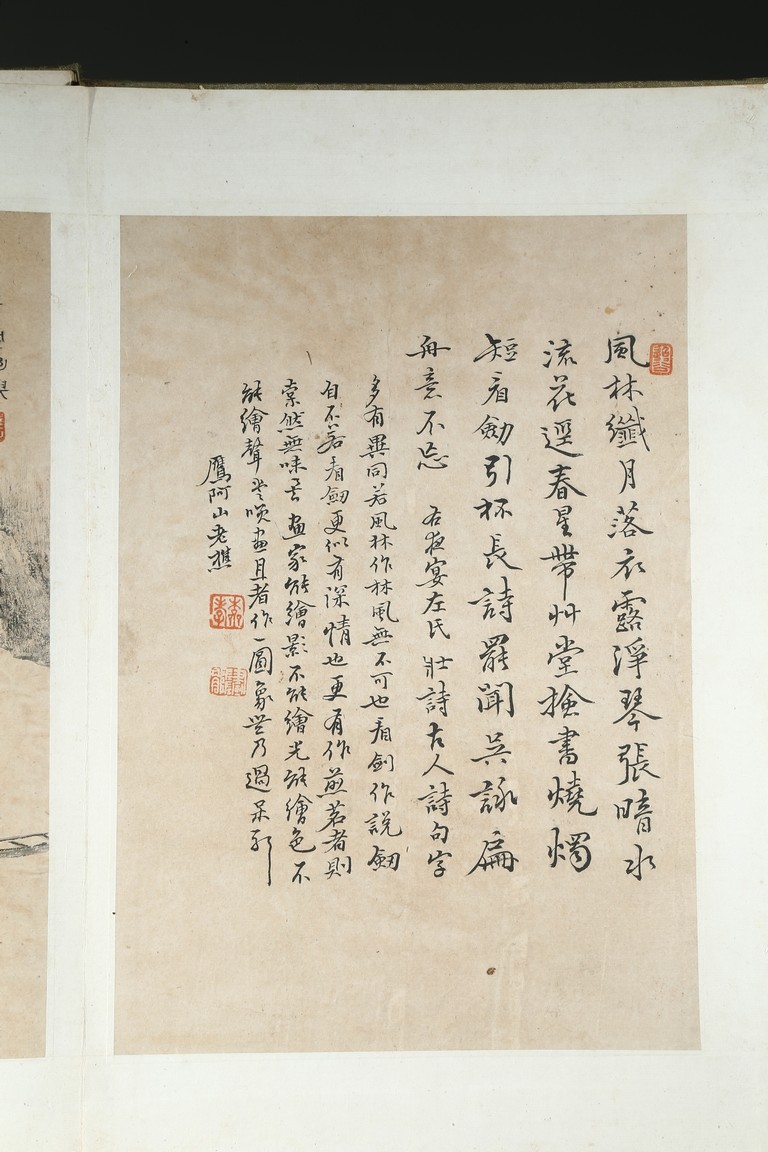 風林纖月落衣露淨琴張暗水
流花逕春星帶艸堂撿書燒燭
短看劍引杯長詩罷聞吳詠扁
舟意不忘 右夜宴左氏莊詩古人詩句字
多有異同若風林作林風無不可也看劍作說劍
自不若看劍更似有深情也更有作煎茗者則
索然無味矣畫家能繪影不能繪光能繪色不
能繪聲 畫且者作一圖象 乃過
鷹阿山老樵